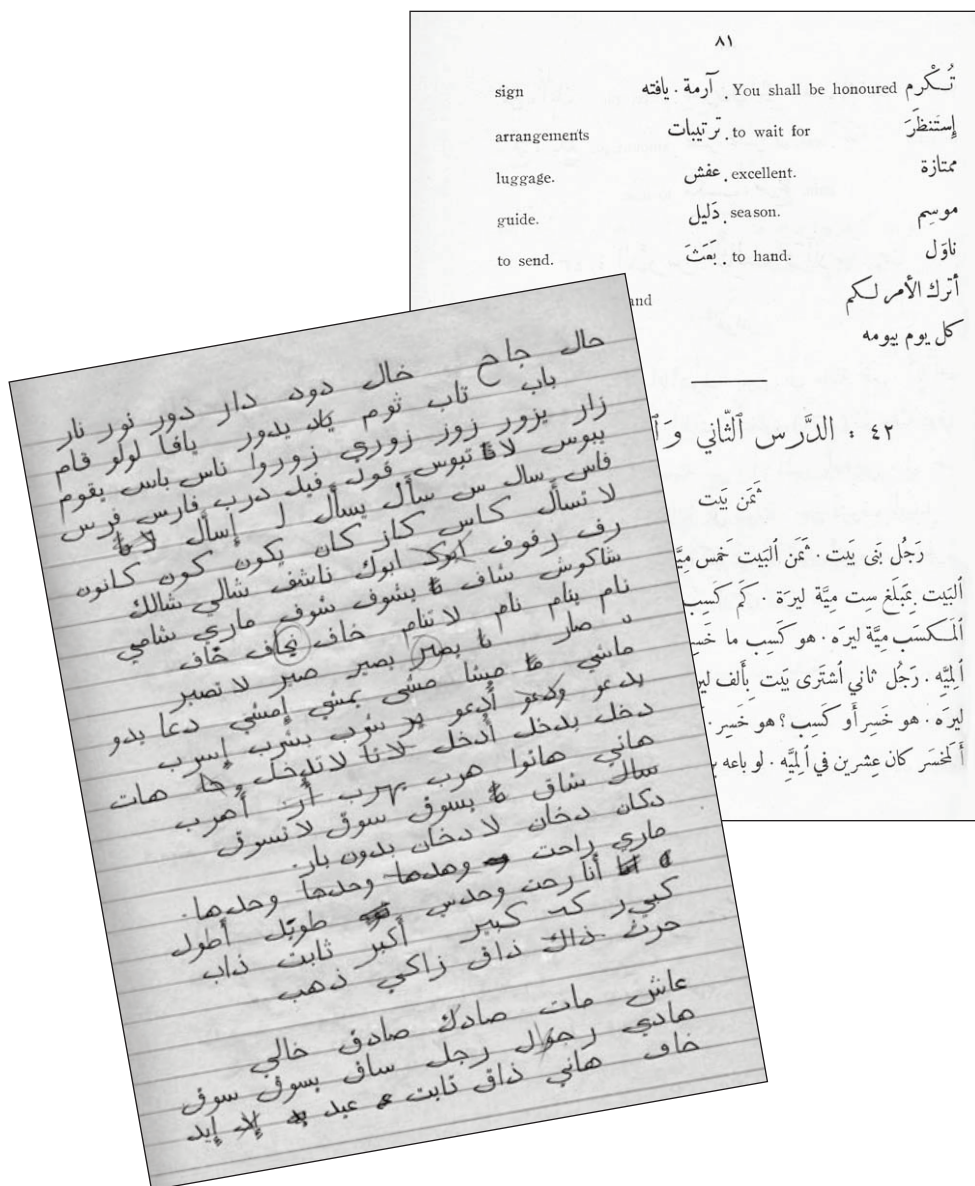 ٨١
تُكْرم You shall be honoured. آرمة . يافته sign
إستَنظَرَ to wait for. ترتيبات arrangements
ممتازة excellent. عفش luggage.
موسِم season. دَليل guide.
ناوَل to hand. بَعَثَ to send.
أترك الأمر لكم and
كل يوم بيومه
٤٢ : الدَّرس ٱلثّاني وَٱ
ثمَن بَيت
رَجُل بَنى بَيت . ثمَن ٱلبَيت خَمس مِيَّ
ٱلبَيت بِمَبلَغ ست مِيَّة ليرَة . كَم كَسِب
ٱلمَكسَب مِيَّة ليرَه . هو كَسِب ما خَسِ
ٱلمِيَّه . رَجُل ثاني ٱشتَرى بَيت بِأَلف لير
ليرَه . هو خَسِر أَو كَسِب ؟ هو خَسِر .
أَلمَخسَر كان عِشرين في ٱلمِيَّه . لو باعه بِ
حال جاح خال دود دار دور نور نار
باب تاب ثوم ياد يدور يافا لولو قام
زار يزور زوز زوري زوروا ناس باس يقوم
يبوس لا تبوس فول فيل درب فارس فرس
فاس سال س سأل يسأل لـ إسأل لا
لا تسأل كاس كاز كان يكون كون كانون
رف رفوف ابوك ناشف شالي شالك
شاكوش شاف يشوف شوف ماري شامي
نام ينام نام لا تنام خاف يخاف خاف
صار يصير بصير صير لا تصير
ماشي مشا مشى يمشي إمشي دعا يدو
يدعو ودعو أدعو شرب يشرب إسرب
دخل يدخل أدخل لانا لا تدخل هات
هاتي هاتوا هرب يهرب أر أهرب
ساك ساق يسوق سوق لا تسوق
دكان دخان لا دخان بدون بار.
ماري راحت وهدها وحدها وحدها.
أنا رحت وحدس طويل أطول
كبير كبير أكبر ثابت ذاب
حرث ذاك ذاق زاكي ذهب
عاش مات صادك صادق خالي
هادي رجل ساق يسوق سوق
خاف هاني ذاق تابت عبد إيد